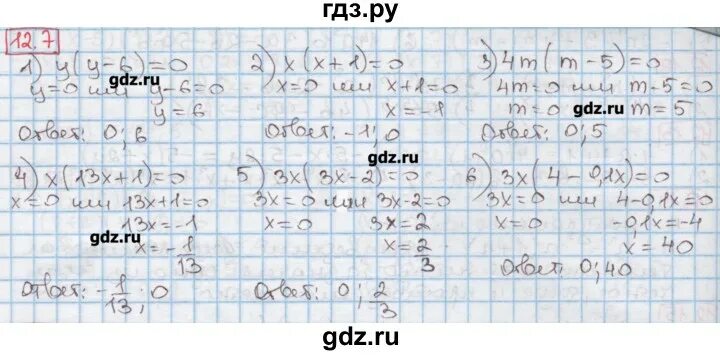 гдз.ру
12.7
1) y(y-6)=0
y=0 или y-6=0
y=6
Ответ: 0; 6
2) x(x+1)=0
x=0 или x+1=0
x=-1
Ответ: -1; 0
3) 4m(m-5)=0
4m=0 или m-5=0
m=0 или m=5
Ответ: 0; 5
4) x(13x+1)=0
x=0 или 13x+1=0
13x=-1
x=-1/13
Ответ: -1/13; 0
5) 3x(3x-2)=0
3x=0 или 3x-2=0
x=0 3x=2
x=2/3
Ответ: 0; 2/3
6) 3x(4-0,1x)=0
3x=0 или 4-0,1x=0
x=0 -0,1x=-4
x=40
Ответ: 0; 40
gdz.ru
gdz.ru
gdz.ru
gdz.ru
gdz.ru
gdz.ru
gdz.ru